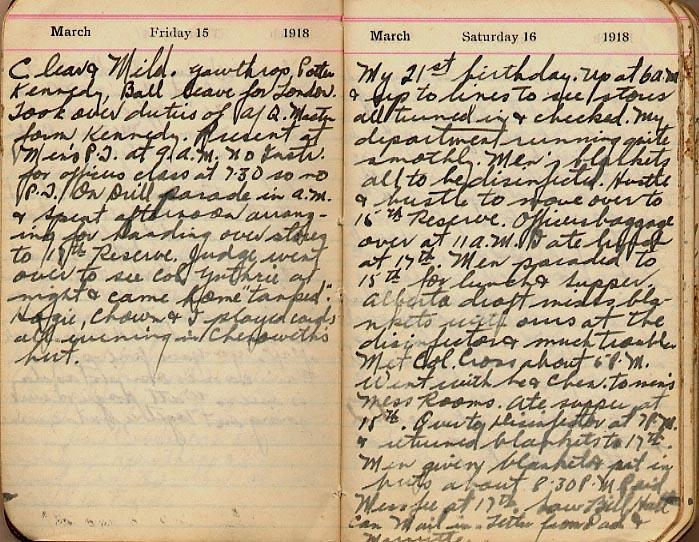 March Friday 15 1918
C leave & Mild. Gawthrop, Potter
Kennedy, Ball leave for London.
Took over duties of A/Q. Master
form Kennedy. Present at
Men's P.T. at 9 A.M. no Instr.
for officers class at 7:30 so no
P.T. On Drill parade in a.m.
& spent afternoon arrang-
ing for handing over stores
to 19th Reserve. Judge went
over to see Col Guthrie at
night & came home "tanked".
Hogie, Chown & I played cards
all evening in Chenowiths
hut.
March Saturday 16 1918
My 21st birthday. Up at 6 a.m.
& up to lines to see stores
all turned in & checked. My
department running quite
smothly. Men's blankets
all to be disinfected. Hustle
& bustle to move over to
15th Reserve. Officers baggage
over at 11 A.M. I ate lunch
at 17th. Men paraded to
15th for lunch & supper,
Alberta draft mixes bla-
nkets with ours at the
disinfector & much trouble.
Met Col. Cross about 5 P.M.
Went with he & Chen. to men's
Mess Rooms. Ate supper at
15th. Over to disinfector at 7 P.M.
& returned blankets to 17th.
Men given blankets & put in
huts about 8:30 P.M. Paid
Mess fee at 17th. Saw Bill Hall
Can Mail in. Letter from Dad &